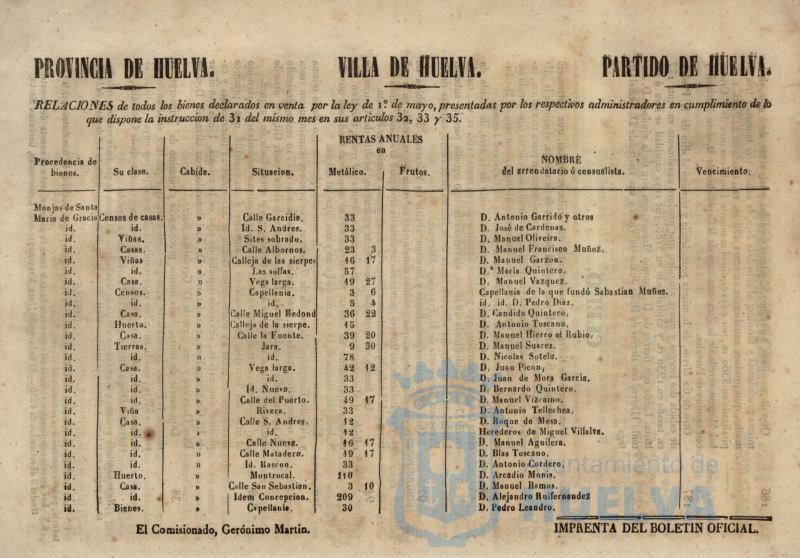 PROVINCIA DE HUELVA. VILLA DE HUELVA. PARTIDO DE HUELVA.
RELACIONES de todos los bienes declarados en venta por la ley de 1º de mayo, presentadas por los respectivos administradores en cumplimiento de lo
que dispone la instruccion de 31 del mismo mes en sus articulos 32, 33 y 35.
RENTAS ANUALES
en
Procedencia de bienes. Su clase. Cabida. Situacion. Metálico. Frutos. NOMBRE del arrendatario ó censualista. Vencimiento.
Monjas de Santa
Maria de Gracia Censos de casas. » Calle Garcidia. 33 D. Antonio Garrido y otros
id. id. » Id. S. Andres. 33 D. José de Cardenas.
id. Viñas. » Sites sobrado. 33 D. Manuel Oliveira.
id. Casas. » Calle Albornos. 23 3 D. Manuel Francisco Muñoz.
id. Viñas » Calleja de las sierpes 16 17 D. Manuel Garzon.
id. id. » Las sollas. 57 D.ª Maria Quintero.
id. Casa. » Vega larga. 49 27 D. Manuel Vazquez.
id. Censos. » Capellania. 3 6 Capellania de la que fundó Sabastian Muños.
id. id. » id. 5 4 id. id. D. Pedro Diaz.
id. Casa. » Calle Miguel Redond 36 22 D. Candido Quintero.
id. Huerto. » Calleja de la sierpe. 15 D. Antonio Toscano.
id. Casa. » Calle la Fuente. 39 20 D. Manuel Hierro el Rubio.
id. Tierras. » Jara. 9 30 D. Manuel Suarez.
id. id. » id. 78 D. Nicolas Sotelo.
id. Casa. » Vega larga. 42 12 D. Juan Picon,
id. id. » id. 33 D. Juan de Mora Garcia.
id. id. » Id. Nueva. 33 D. Bernardo Quintero.
id. id. » Calle del Puerto. 49 17 D. Manuel Vizcaino.
id. Viña » Rivera. 33 D. Antonio Tellechea.
id. Casa. » Calle S. Andres. 12 D. Roque de Mesa.
id. id. » id. 12 Herederos de Miguel Villalva.
id. id. » Calle Nueva. 16 17 D. Manuel Aguilera.
id. id. » Calle Matadero. 49 17 D. Blas Toscano.
id. id. » Id. Rascon. 33 D. Antonio Cordero.
id. Huerto. » Montrocal. 110 D. Arcadio Monis.
id. Casa. » Calle San Sebastian. 3 10 D. Manuel Ramos.
id. id. » Idem Concepcion. 209 D. Alejandro Ruifernandez
id. Bienes. » Capellania. 30 D. Pedro Leandro.
El Comisionado, Gerónimo Martin. IMPRENTA DEL BOLETIN OFICIAL.
Ayuntamiento de
HUELVA